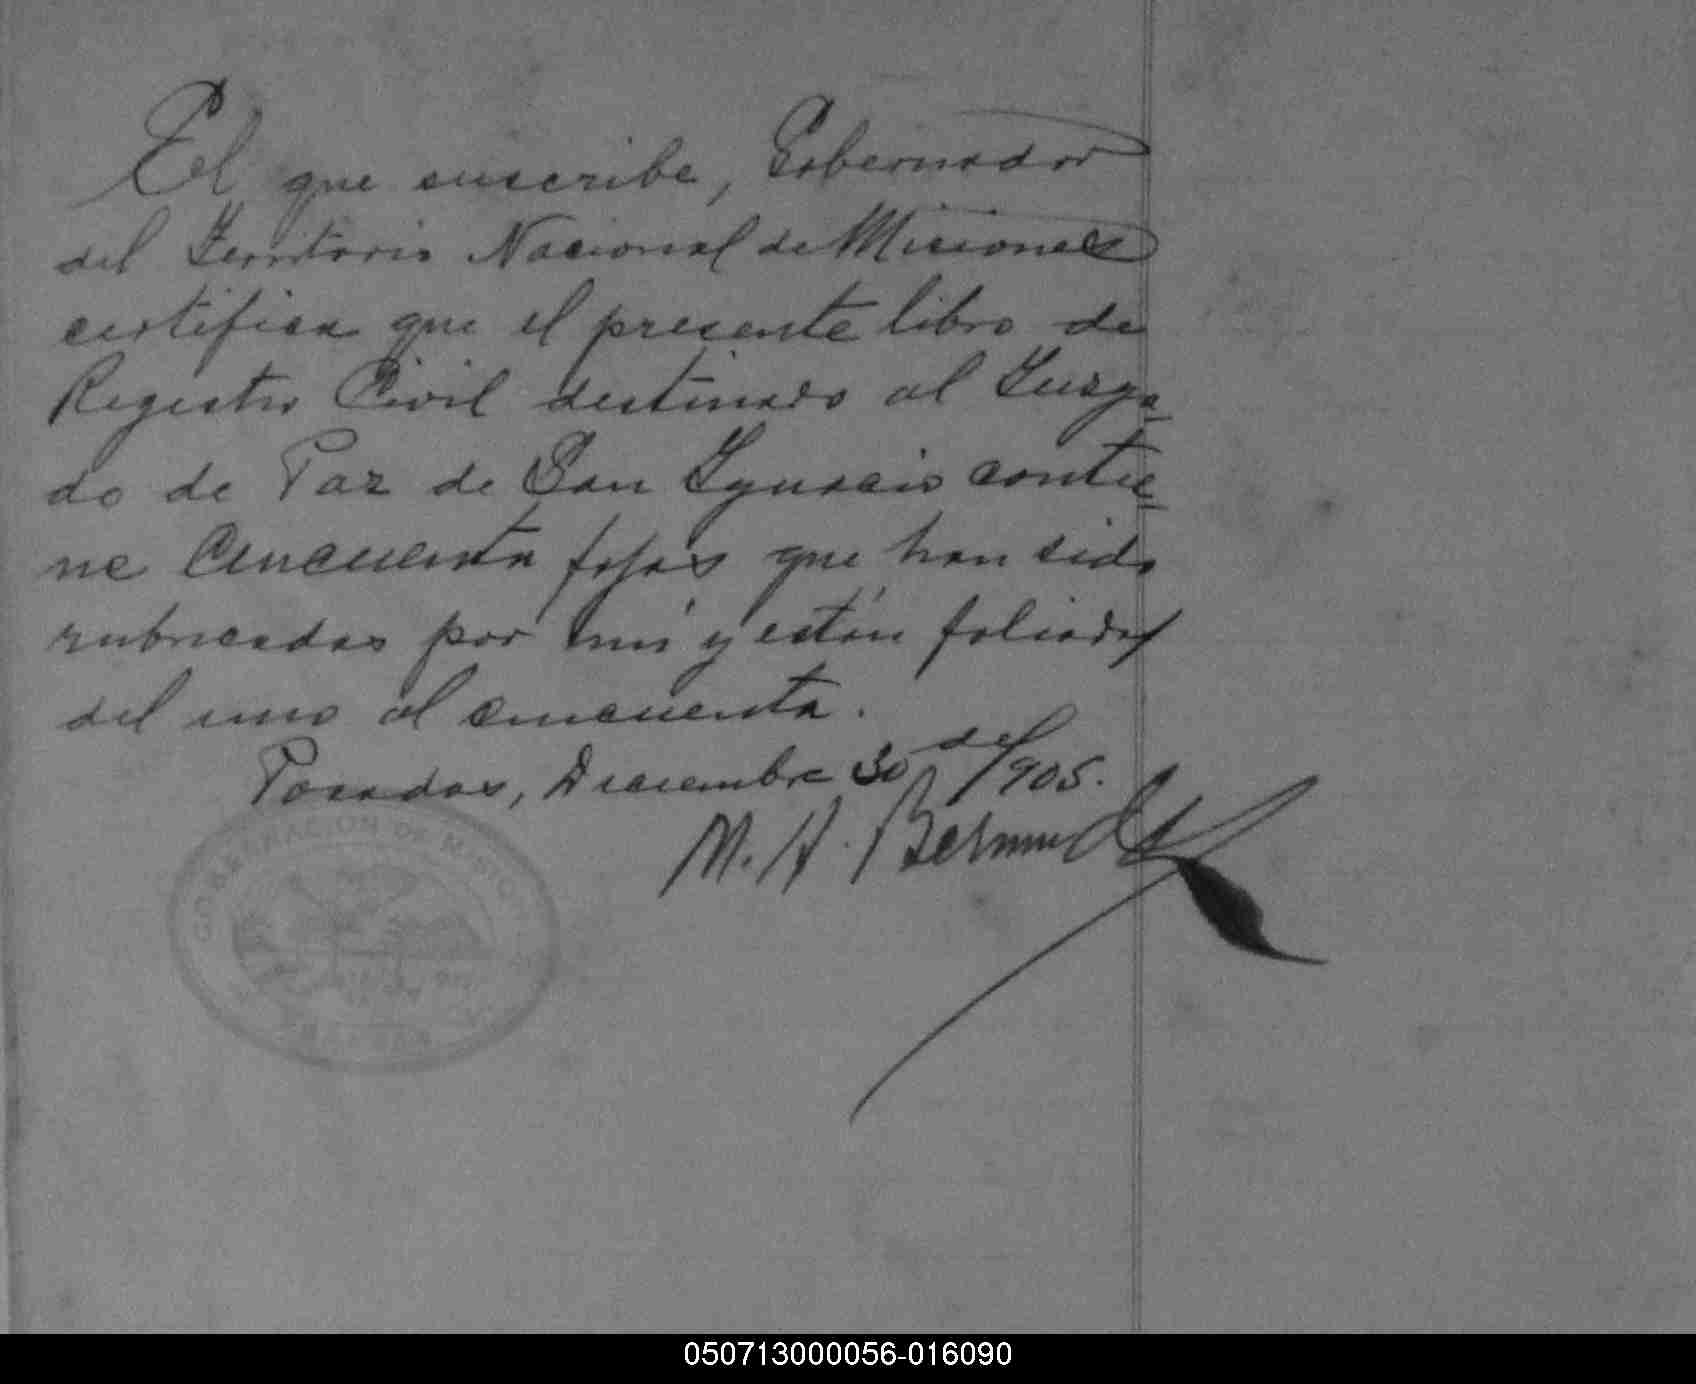 El que suscribe, Gobernador
del Territorio Nacional de Misiones
certifica que el presente libro de
Registro Civil destinado al Juzga-
do de Paz de San Ignacio contie-
ne cincuenta fojas que han sido
rubricadas por mi y están foliadas
del uno al cincuenta.
Posadas, Diciembre 30 de 1905.
M. A. Bermudez
GOBERNACION DE MISIO
050713000056-016090